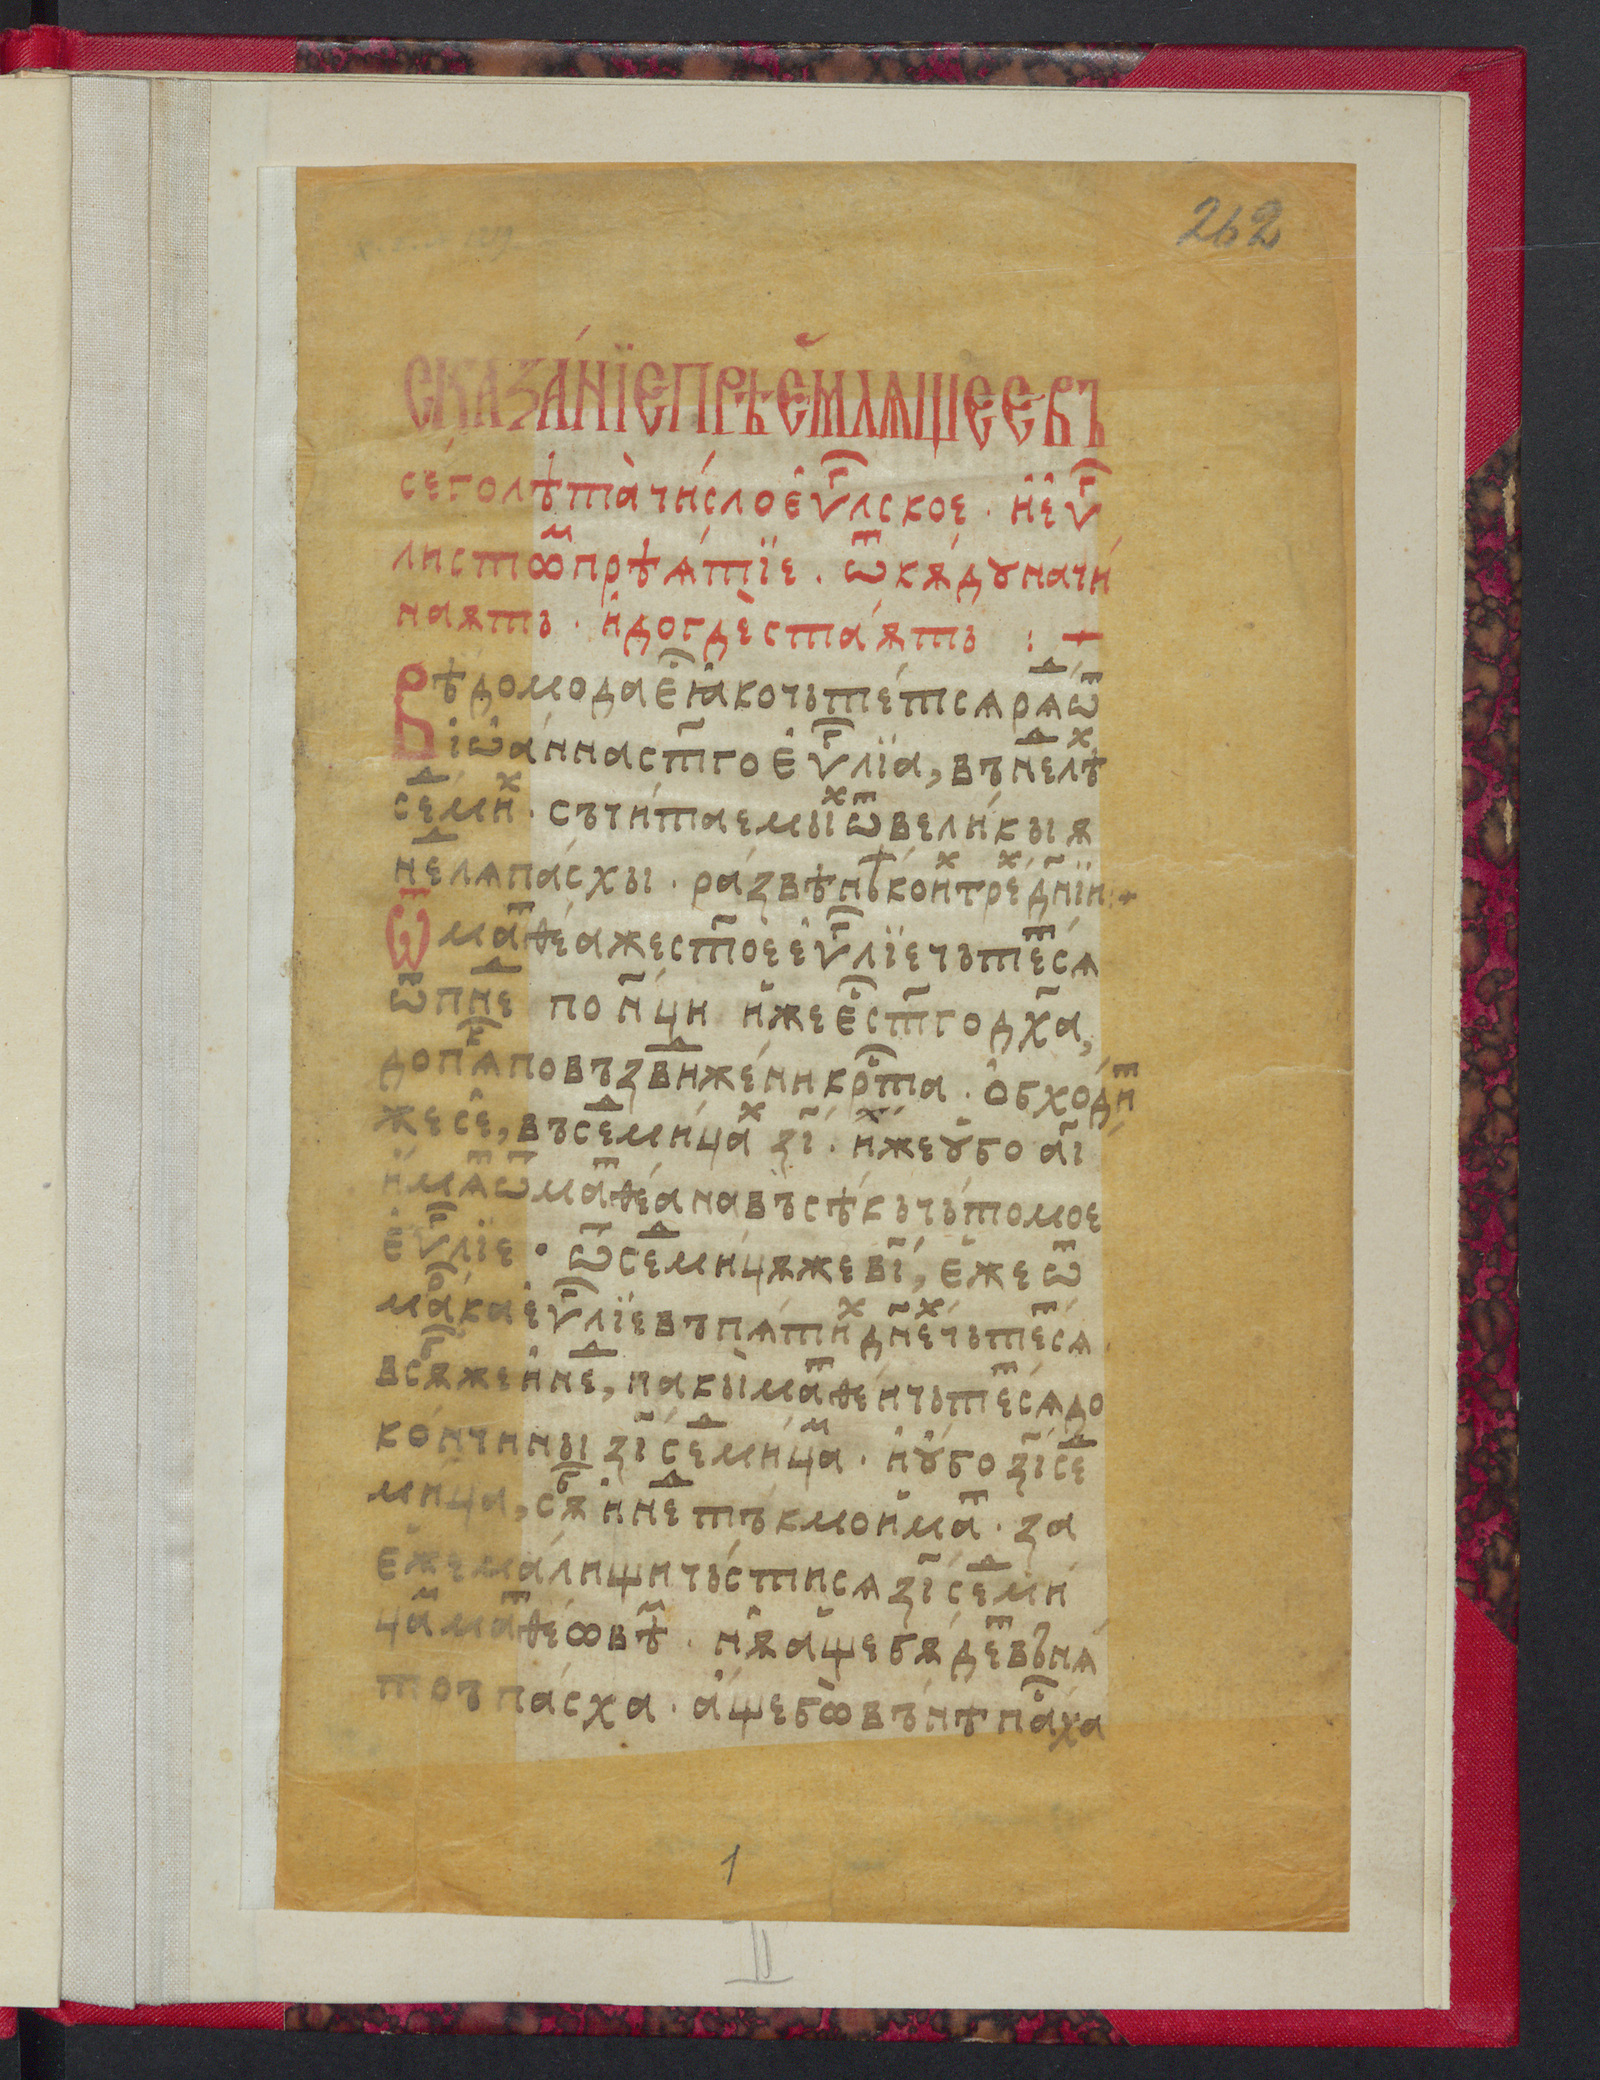 262
СКАЗА́НЇЕПРѢЕ́МЛѦЩЕЕВЪ
се́голѣ́та̀чи́слоѐѵⷢ҇лское · и҆е҆ѵⷢ҇
листѡⷨпрѣѧ́тїе . ѿкѫ́дꙋначи́
наѫтъ · и҆догдѐста́ѫтъ : +
Вѣ́домодае҆҃ꙗ҆кочьте́тсѧрѧⷣѿ
і҆ѡа́ннаст҃гое҆ѵⷢ҇лїа, вънеⷣлѣⷯ
сеⷣми́ⷯ · съчи́таемыⷯѿвели́кыѫ
неⷣлѧпа́схы · ра́звѣ
Ѿмаⷮѳе́ажест҃о́ее҆ѵⷢ҇лїечьтеⷮсѧ́
ѿпнеⷣ по н҃ци и҆́жее҆҃ст҃годх҃а,
допѧⷦ҇повъздви́же́никрⷭ҇та · о҆бходиⷮ
жесѐ, въсеⷣми́цаⷯ з҃і · и҆́ⷯжеѹ҆боа҃і
и҆́мѧⷮѿмаⷮѳе́анавъсѣ́къчь́томое
е҆ѵⷢ҇лїе · ѿсеⷣми́цѫжев҃і, е҆́жеѿ
маⷬ҇кае҆ѵⷢ҇лїевъпѧти́ⷯдн҃еⷯчьтеⷮсѧ́
всѫⷠ҇жеи҆неⷣ, пакы̀маⷮѳеичьтеⷮсѧ́до
ко́нчины з҃ісеⷣми́цаⷨ · и҆ѹ҆боз҃ісеⷣ
ми́ца, сѫⷠи҆неⷣтъкмои҆́маⷮ · за
е҆́жема́лищичьстисѧз҃ісеⷣми́
цаⷨмаⷮѳеѡвѣⷨ · и҆ѫ҆а҆́щебѫ́деⷮвънѧ́
тоъпа́сха · а҆́щебѡ̀вън́ѣпаⷭ҇ха
1
II